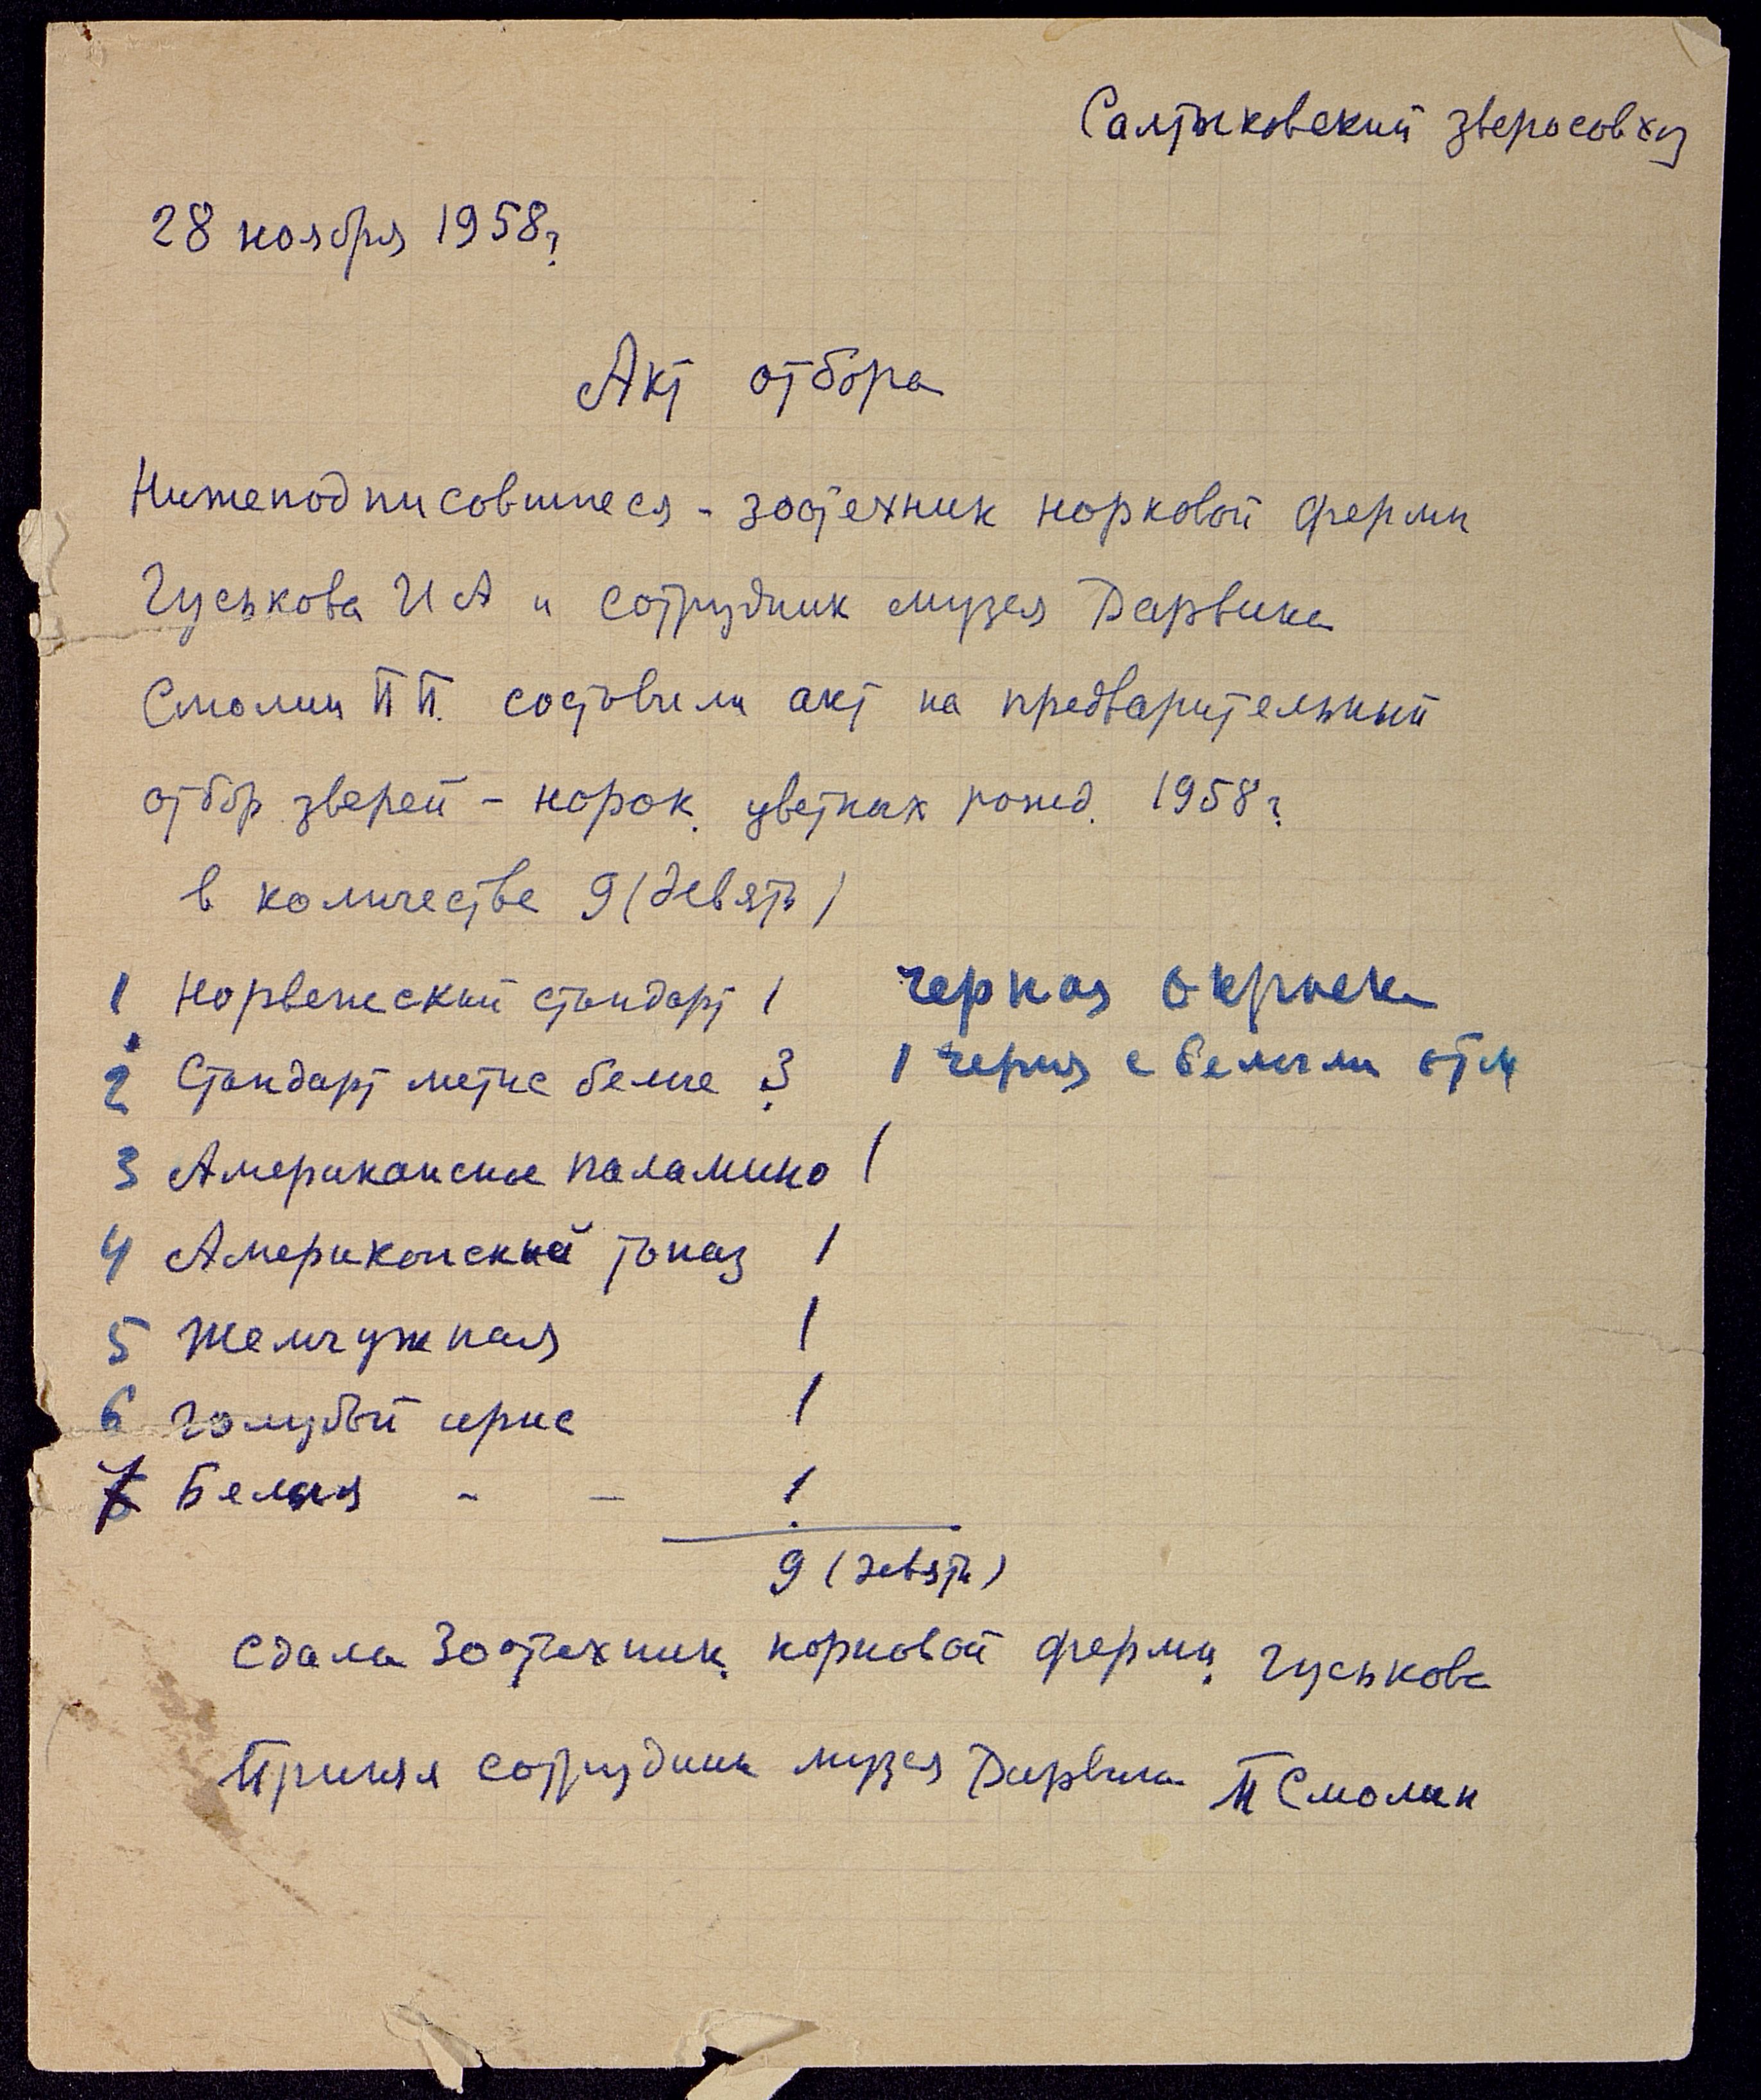 Салтыковский зверосовхоз
28 ноября 1958г
Акт отбора
Нижеподписовшиеся - зоотехник норковой фермы
Гуськова И А и сотрудник музея Дарвина
Смолин П П. составили акт на предварительный
отбор зверей - норок цветных рожд. 1958г
в количестве 9 (девять)
1 Норвежский стандарт 1 черная окраска
2 Стандарт метис белые 3 1 черная с белыми отм
3 Американские паламино 1
4 Американский топаз 1
5 Жемчужная 1
6 Голубой ирис 1
7 Белая - - 1
9 (девять)
Сдала Зоотехник норковой фермы Гуськова
Принял сотрудник музея Дарвина П Смолин